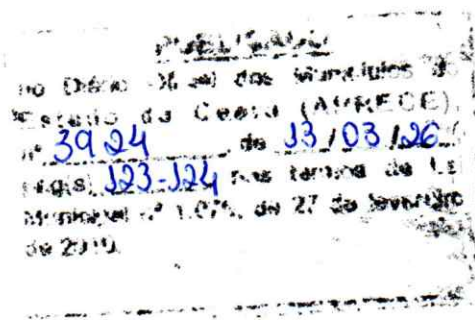 PUBLICADO
no Diário Oficial dos Municípios do
Estado do Ceará (APRECE),
nº 3924 de 13/03/26
Pág(s). 123-124 nos termos da Lei
Municipal nº 1.075, de 27 de fevereiro
de 2019.